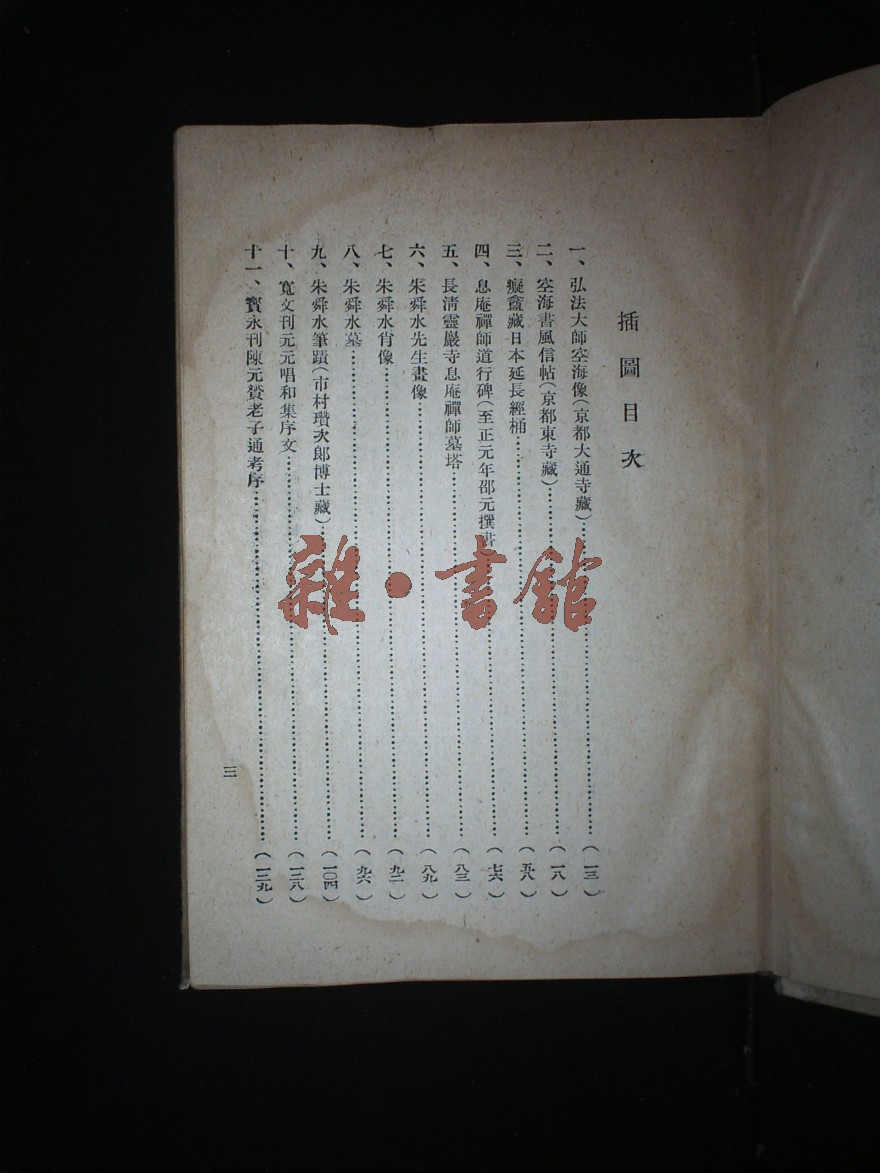 插圖目次
一、弘法大師空海像(京都大通寺藏)……(一三)
二、空海書風信帖(京都東寺藏)……(一八)
三、癡盦藏日本延長經桶……(五八)
四、息庵禪師道行碑(至正元年邵元撰書……(七六)
五、長清靈巖寺息庵禪師墓塔……(八三)
六、朱舜水先生畫像……(八九)
七、朱舜水肖像……(九二)
八、朱舜水墓……(九六)
九、朱舜水筆蹟(市村瓚次郎博士藏)……(一〇四)
十、寬文刊元元唱和集序文……(一三八)
十一、寶永刊陳元贇老子通考序……(一三九)
三
雜·書館